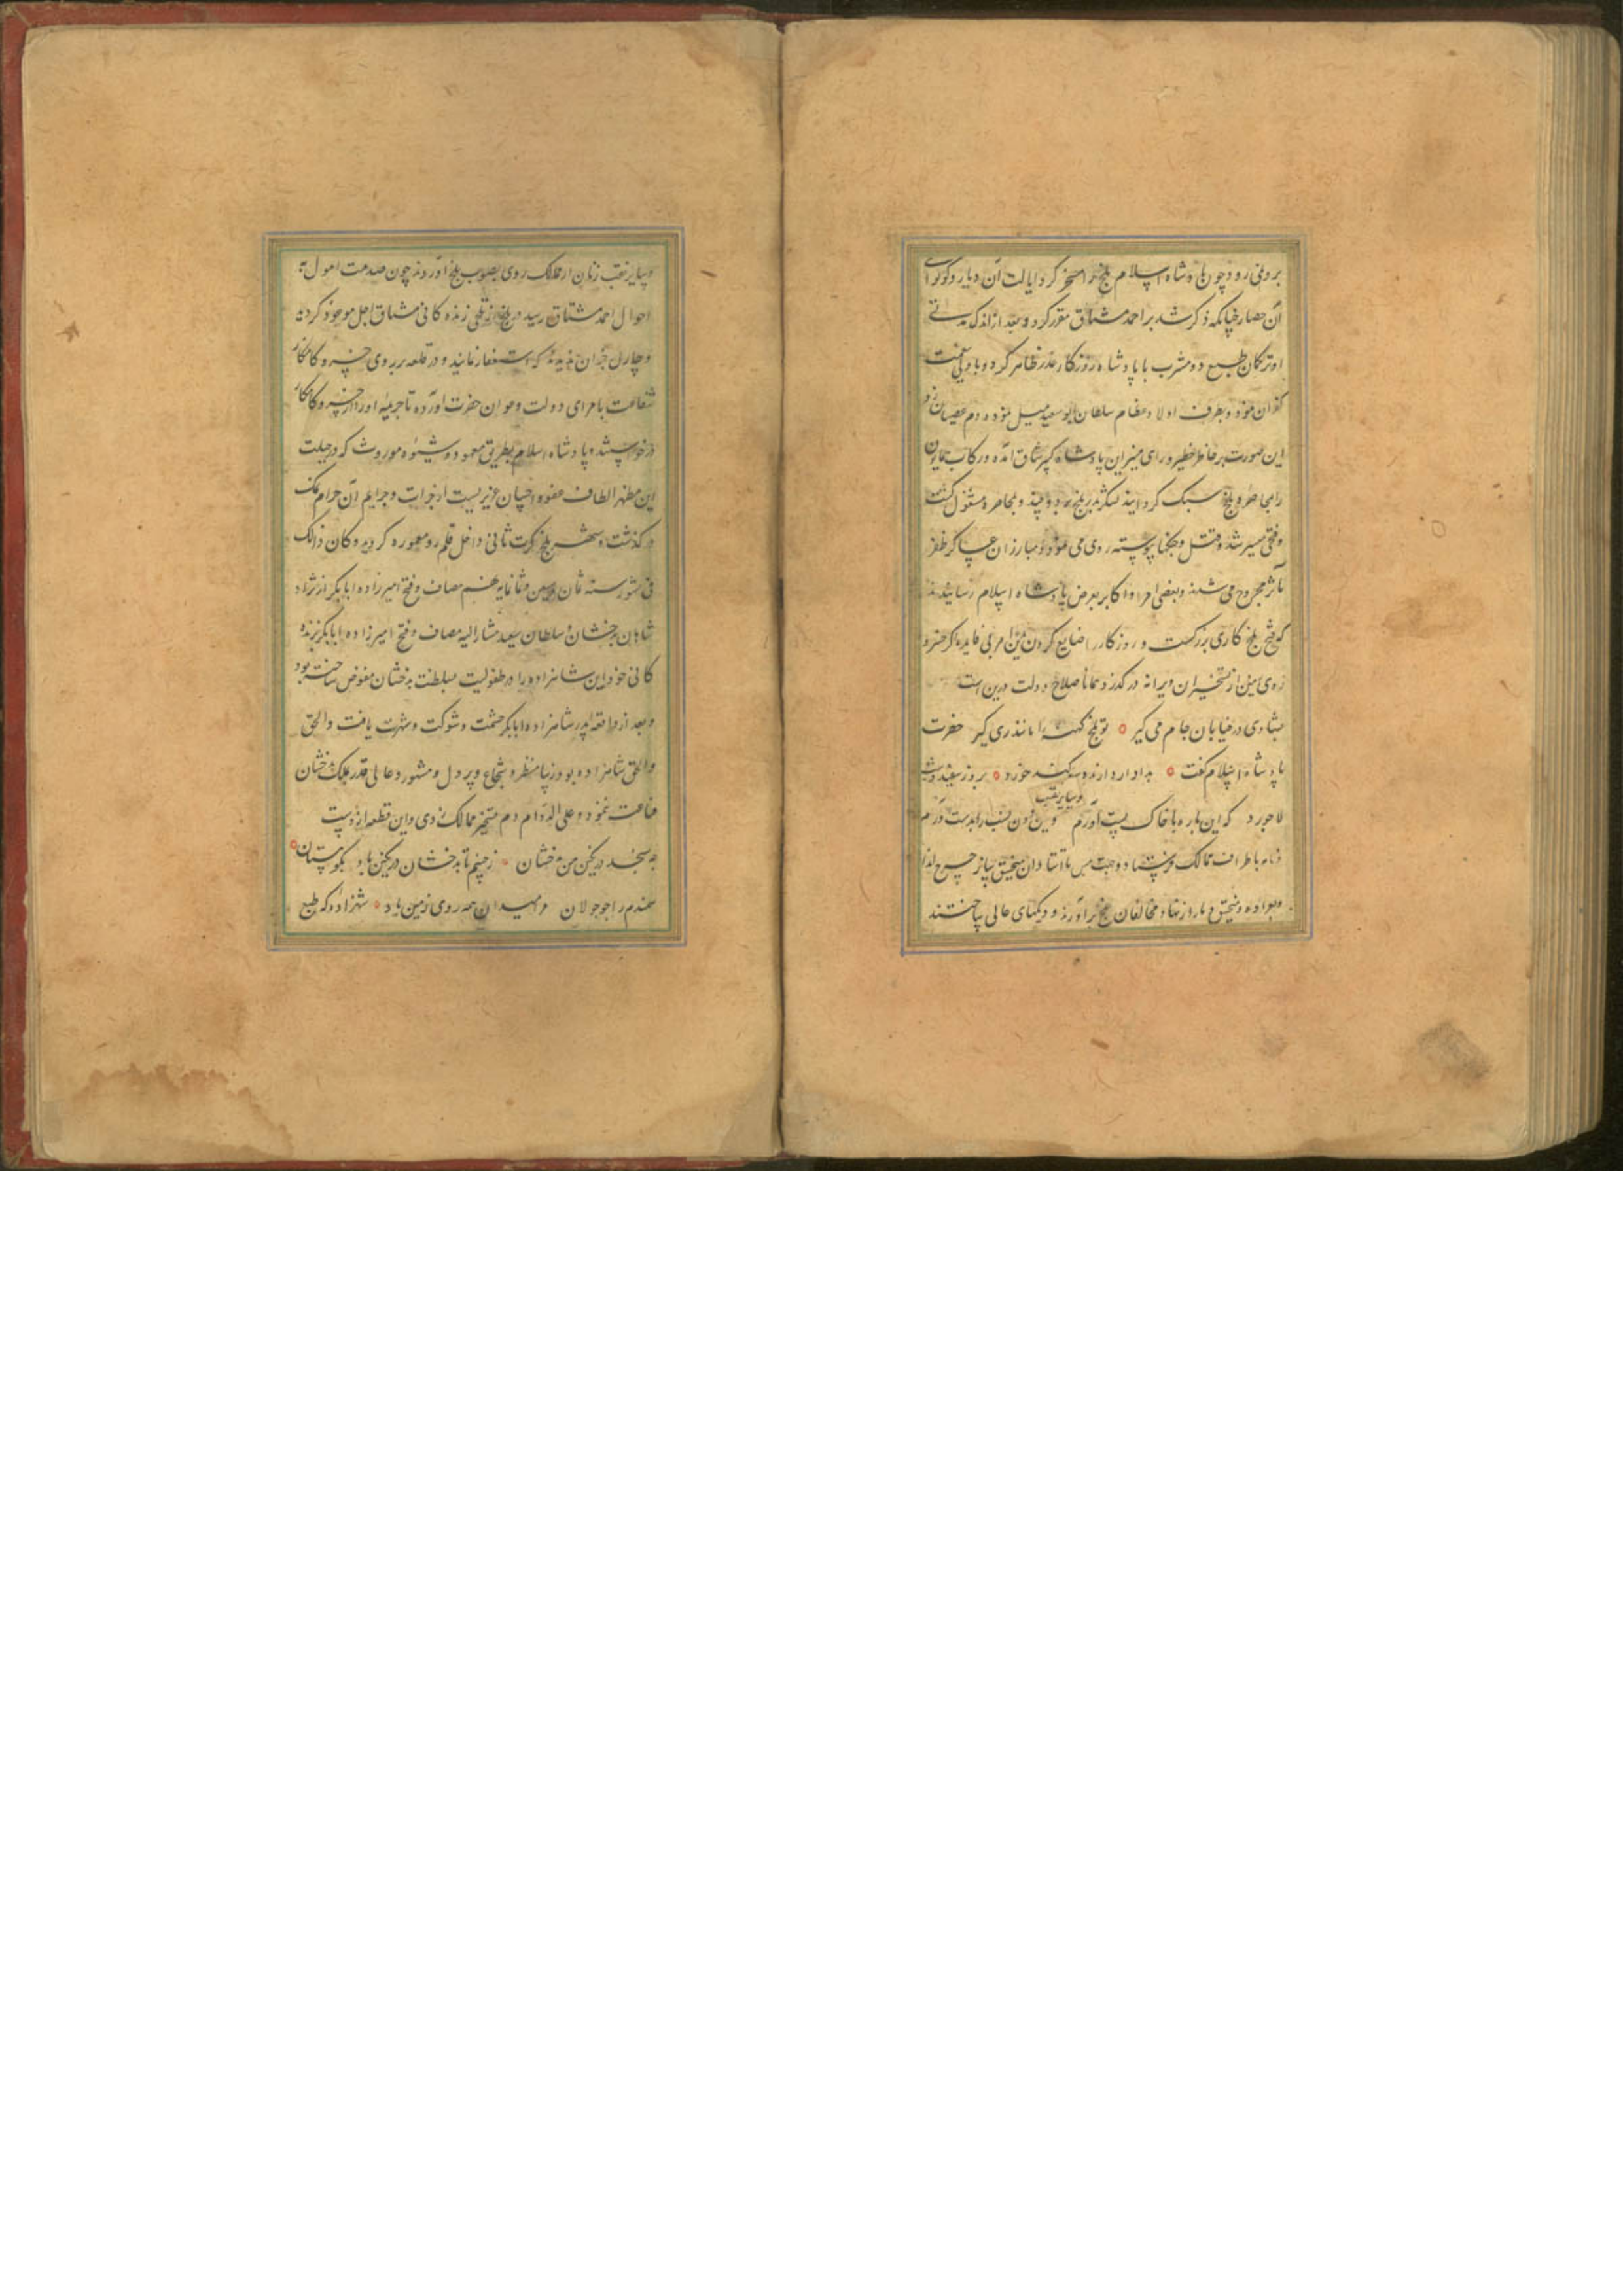 بروی رود چون پادشاه اسلام بلخ را مسخر کرد ایالت آن دیار و کوتوالی
آن حصار چنانکه ذکر شد بر احمد مشتاق مقرر کرد و بعد از اندک مدتی
او ترکمان طبع دو مشرب با پادشاه روزگار غدر ظاهر کرد و با ولی نعمت
کفران نمود و بطرف اولاد عظام سلطان ابوسعید میل نموده دم عصیان زد
این صورت بر خاطر خطیر و رای منیر این پادشاه کبیر شاق آمده و رکاب همایون
را بمحاصره بلخ سبک گردانید لشکر بدر بلخ برد و بمحاصره مشغول گشت
وقتی میسر شد و قتل و جنگها پیوسته روی می نمود و مبارزان عساکر ظفر
مآثر مجروح می شدند و بعضی امرا و اکابر بعرض پادشاه اسلام رسانیدند
که فتح بلخ کاری بزرگست و روزگار را ضایع کردن درین امر بی فایده اگر خسرو
روی زمین از تسخیر این ویرانه در گذرد همانا صلاح دولت درین است
بشادی در خیابان جام می گیر تو بلخ کهنه را ماندری گیر حضرت
پادشاه اسلام گفت بدادار دارنده سوگند خورد بروز سفید و شب
لاجورد که این باره با خاک پست آورم
نامه باطراف ممالک فرستاد و جهت مس تا استادان منجنیق ساز چرخ انداز
و عراده و منجنیق دمار از نهاد مخالفان بلخ برآورند و دیگهای عالی ساختند
وسایر نقب
وسایر نقب زنان از ممالک روی بصوب بلخ آوردند چون صدمت اصول به
احوال احمد مشتاق رسید در بلخ از تلخی زندگانی مشتاق اجل موجود گردید
و چاره آن ندید که استغفار نماید و در قلعه بر روی خسرو کامکار
شفاعت بامرای دولت و اعوان حضرت آورده تا جریمه او را از خسرو کامکار
درخواستند و پادشاه اسلام بطریق معهود و شیوه موروث که در جبلت
این مظهر الطاف عفو و احسان عزیزیست از جرات و جرایم آن حرام نمک
در گذشت و شهر بلخ کرت ثانی داخل قلم رو معموره گردید و کان ذلک
فی شهور سنه ثمان وسبعین و ثمانمایه مصاف و فتح امیرزاده ابابکر از نژاد
شاهان بدخشان سلطان سعید مشارالیه مصاف و فتح امیرزاده ابابکر بزنده
کانی خود این شاهزاده را در طفولیت بسلطنت بدخشان مفوض ساخته بود
و بعد از واقعه پدر شاهزاده ابابکر حشمت و شوکت و شهرت یافت والحق
والحق شاهزاده بود زیبا منظر و شجاع و پر دل و مشهور و عالی قدر بملک بدخشان
قناعت ننمود و علی الدوام دم تسخیر ممالک زدی و این قطعه از وست
چه سنجد در نکین من بدخشان ز چینم تا بدخشان در نکین باد بکوهستان
سمندم را چو جولان میدان همه روی زمین باد شهزاده که طبع